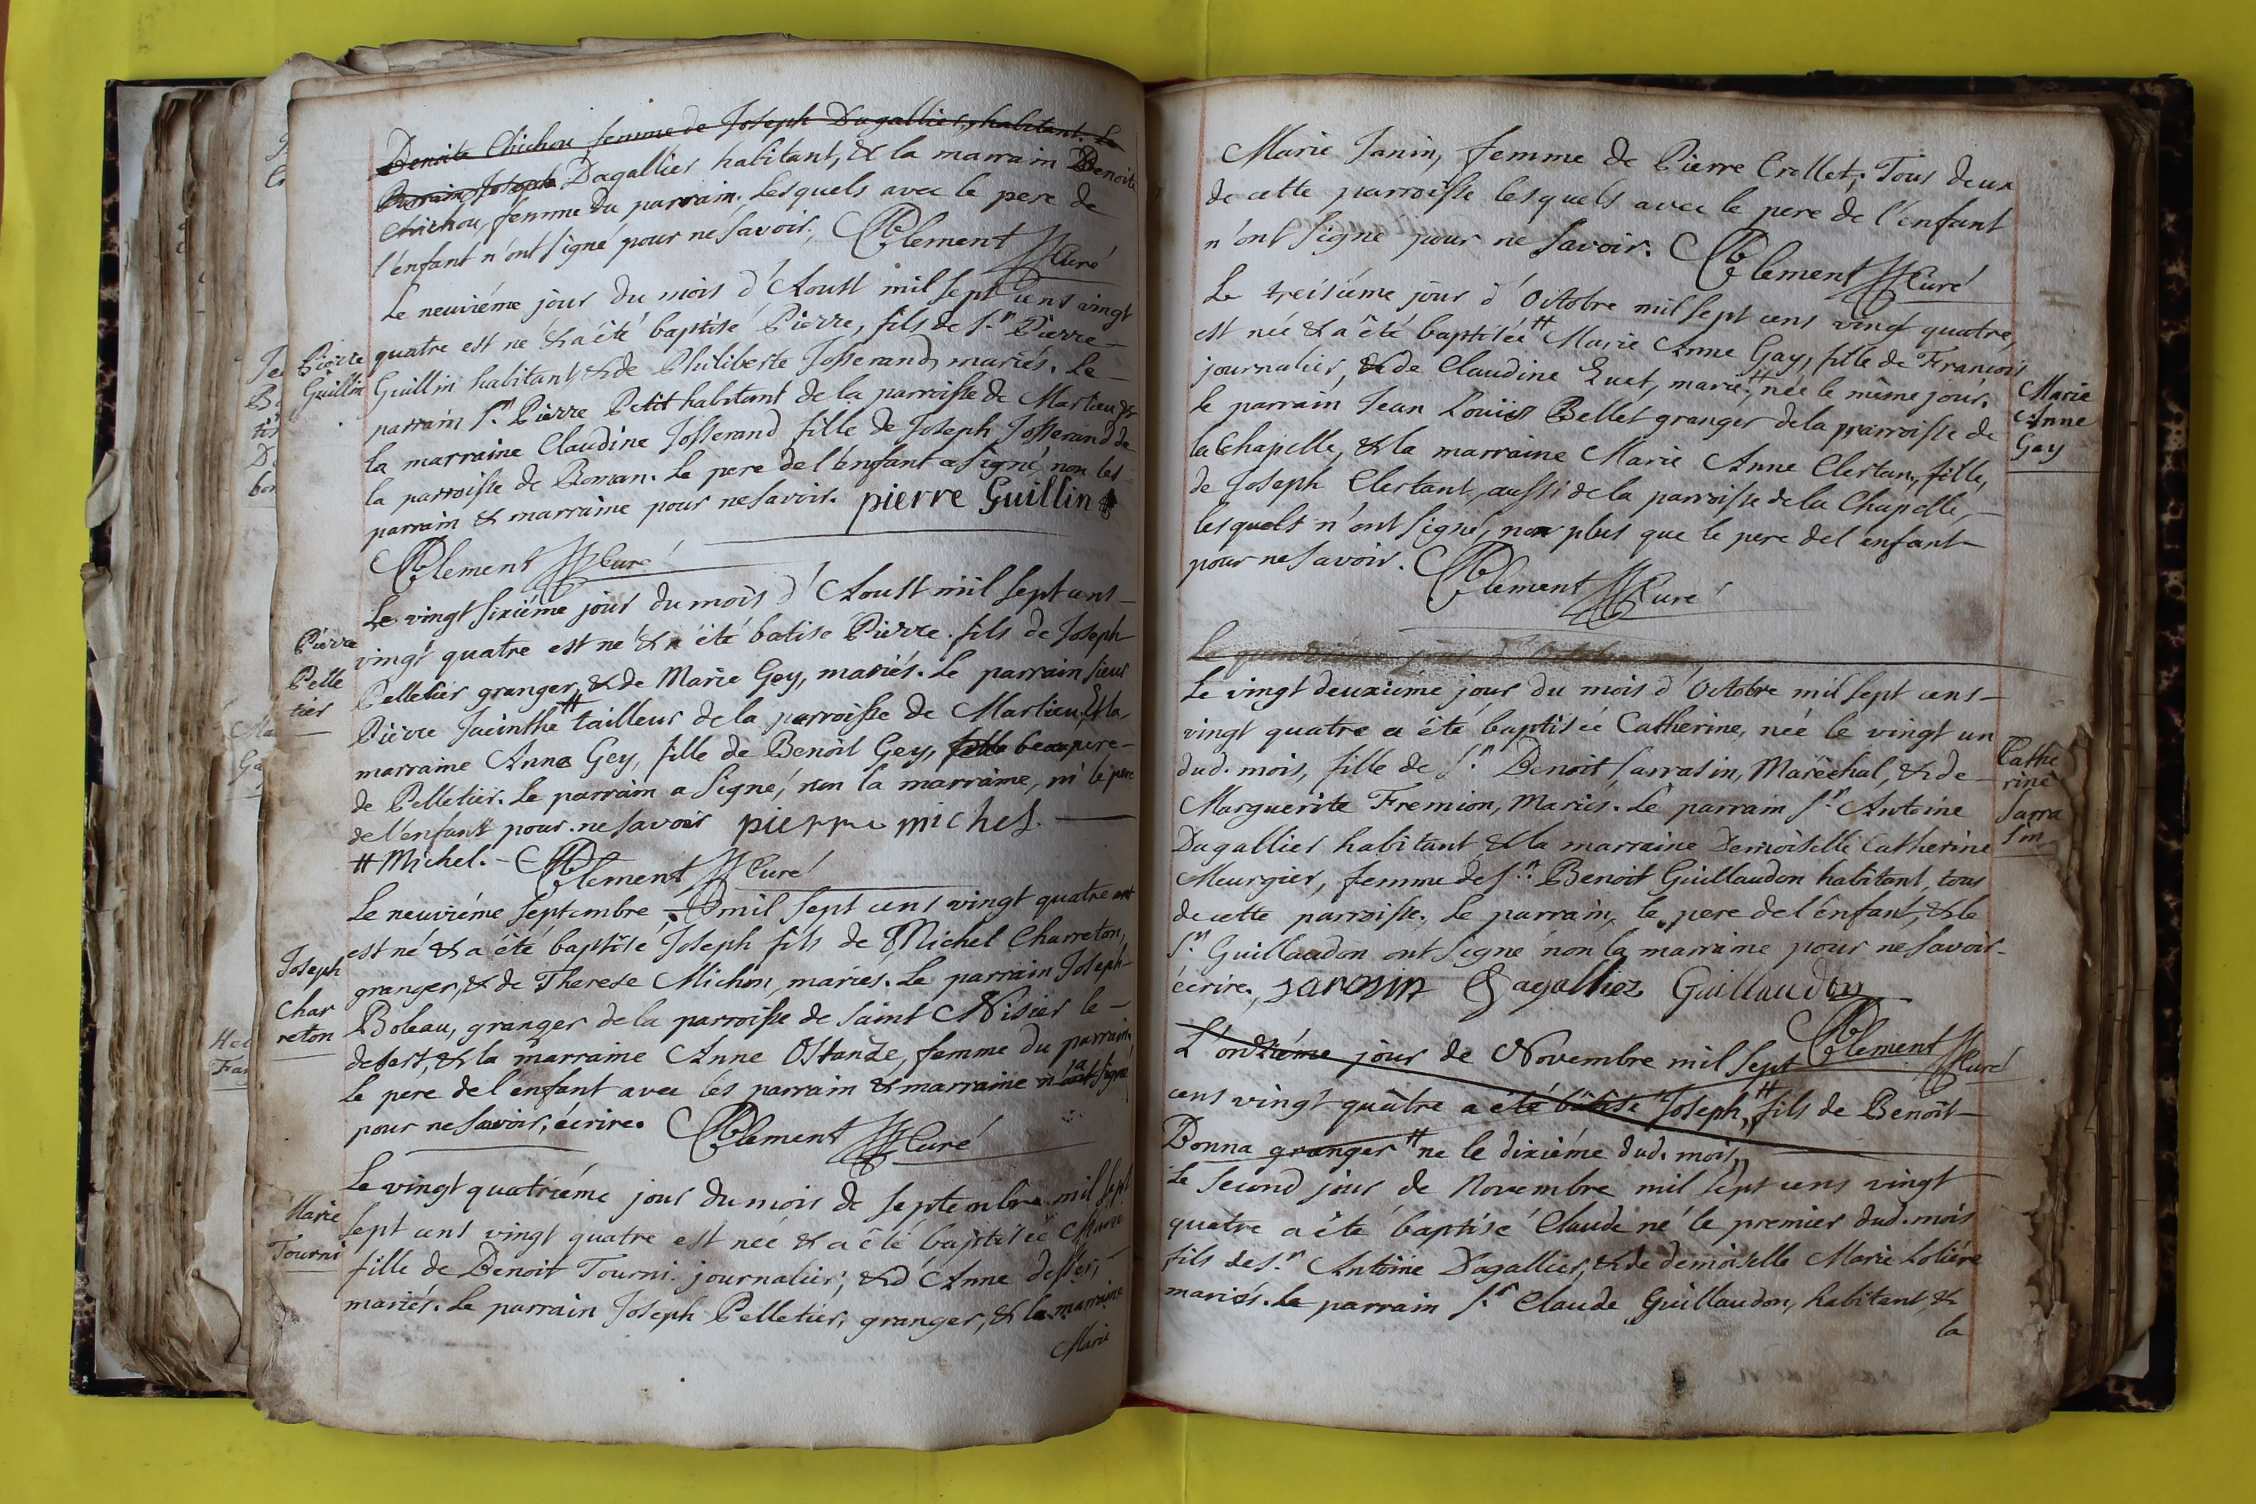 Benoite Chichou femme de Joseph Dagallier, habitant. Le
Parrain Joseph Dagallier habitant, & la marrain Benoite
Chichou, femme du parrain. Lesquels avec le pere de
l'enfant n'ont signé pour ne savoir. Clement Curé
Le neuviéme jour du mois d'Aoust mil sept cens vingt
quatre est né & a été baptisé Pierre, fils de S.r Pierre
Guillin habitant, & de Philiberte Josserand, mariés. Le
parrain S.r Pierre Petit habitant de la parroisse de Marlieu &
la marraine Claudine Josserand fille de Joseph Josserand de
la parroisse de Roman. Le pere de l'enfant a signé, non les
parrain & marraine pour ne savoir. pierre Guillin
Clement Curé
Pierre
Guillin
Le vingt sixiéme jour du mois d'Aoust mil sept cens
vingt quatre est né & a été batisé Pierre. fils de Joseph
Pelletier granger, & de Marie Gey, mariés. Le parrain sieur
Pierre Jacinthe # tailleur de la parroisse de Marlieu, & la
marraine Anne Gey, fille de Benoît Gey, fille beaupere
de Pelletier. Le parrain a signé, non la marraine, ni le pere
de l'enfant pour ne savoir pierre michel.
# Michel. Clement Curé
Pierre
Pelle
tier
Le neuviéme septembre mil sept cens vingt quatre
est né & a été baptisé Joseph fils de Michel Charreton,
granger, & de Therese Michon, mariés. Le parrain Joseph
Boleau, granger de la parroisse de saint Nisier le
desert, & la marraine Anne Ostande, femme du parrain,
Le pere de l'enfant avec les parrain & marraine n'ont signé
pour ne savoir, écrire. Clement Curé
Joseph
Char
reton
Le vingt quatriéme jour du mois de septembre mil sept
sept cens vingt quatre est née & a été baptisée Marie
fille de Benoit Tourni journalier, & d'Anne
mariés. Le parrain Joseph Pelletier, granger, & la marraine
Marie
Marie
Tourni
Marie Janin, femme de Pierre Crollet, Tous deux
de cette parroisse lesquels avec le pere de l'enfant
n'ont signé pour ne savoir. Clement Curé
Le treisiéme jour d'Octobre mil sept cens vingt quatre,
est née & a été baptisée # Marie Anne Gay, fille de François
journalier, & de Claudine Luet, marié. # née le même jour.
le parrain Jean Louïs Bellet granger de la parroisse de
la Chapelle, & la marraine Marie Anne Clertan, fille,
de Joseph Clertant, aussi de la parroisse de la Chapelle,
lesquels n'ont signé, non plus que le pere de l'enfant
pour ne savoir. Clement Curé
Marie
Anne
Gay
Le jour d'Octobre
Le vingt deuxiéme jour du mois d'Octobre mil sept cens
vingt quatre a été baptisée Catherine, née le vingt un
dud. mois, fille de S.r Benoit Sarrasin, Maréchal, & de
Marguerite Fremion, Mariés. Le parrain S.r Antoine
Dagallier habitant & la marraine Demoiselle Catherine
Meurgier, femme de S.r Benoit Guillaudon habitant, tous
de cette parroisse. Le parrain, le pere de l'enfant, & le
S.r Guillaudon ont signé non la marraine pour ne savoir
écrire. sarasin Dagallier Guillaudon
Clement Curé
Cathe
rine
Sarra
sin
L'onziéme jour de Novembre mil sept
cens vingt quatre a été bâtisé Joseph, # fils de Benoît
Donna granger # né le dixiéme dud. mois,
Le second jour de Novembre mil sept cens vingt
quatre a été baptisé Claude né le premier dud. mois
fils de S.r Antoine Dagallier, & de demoiselle Marie Loliére
mariés. Le parrain S.r Claude Guillaudon, habitant, &
la